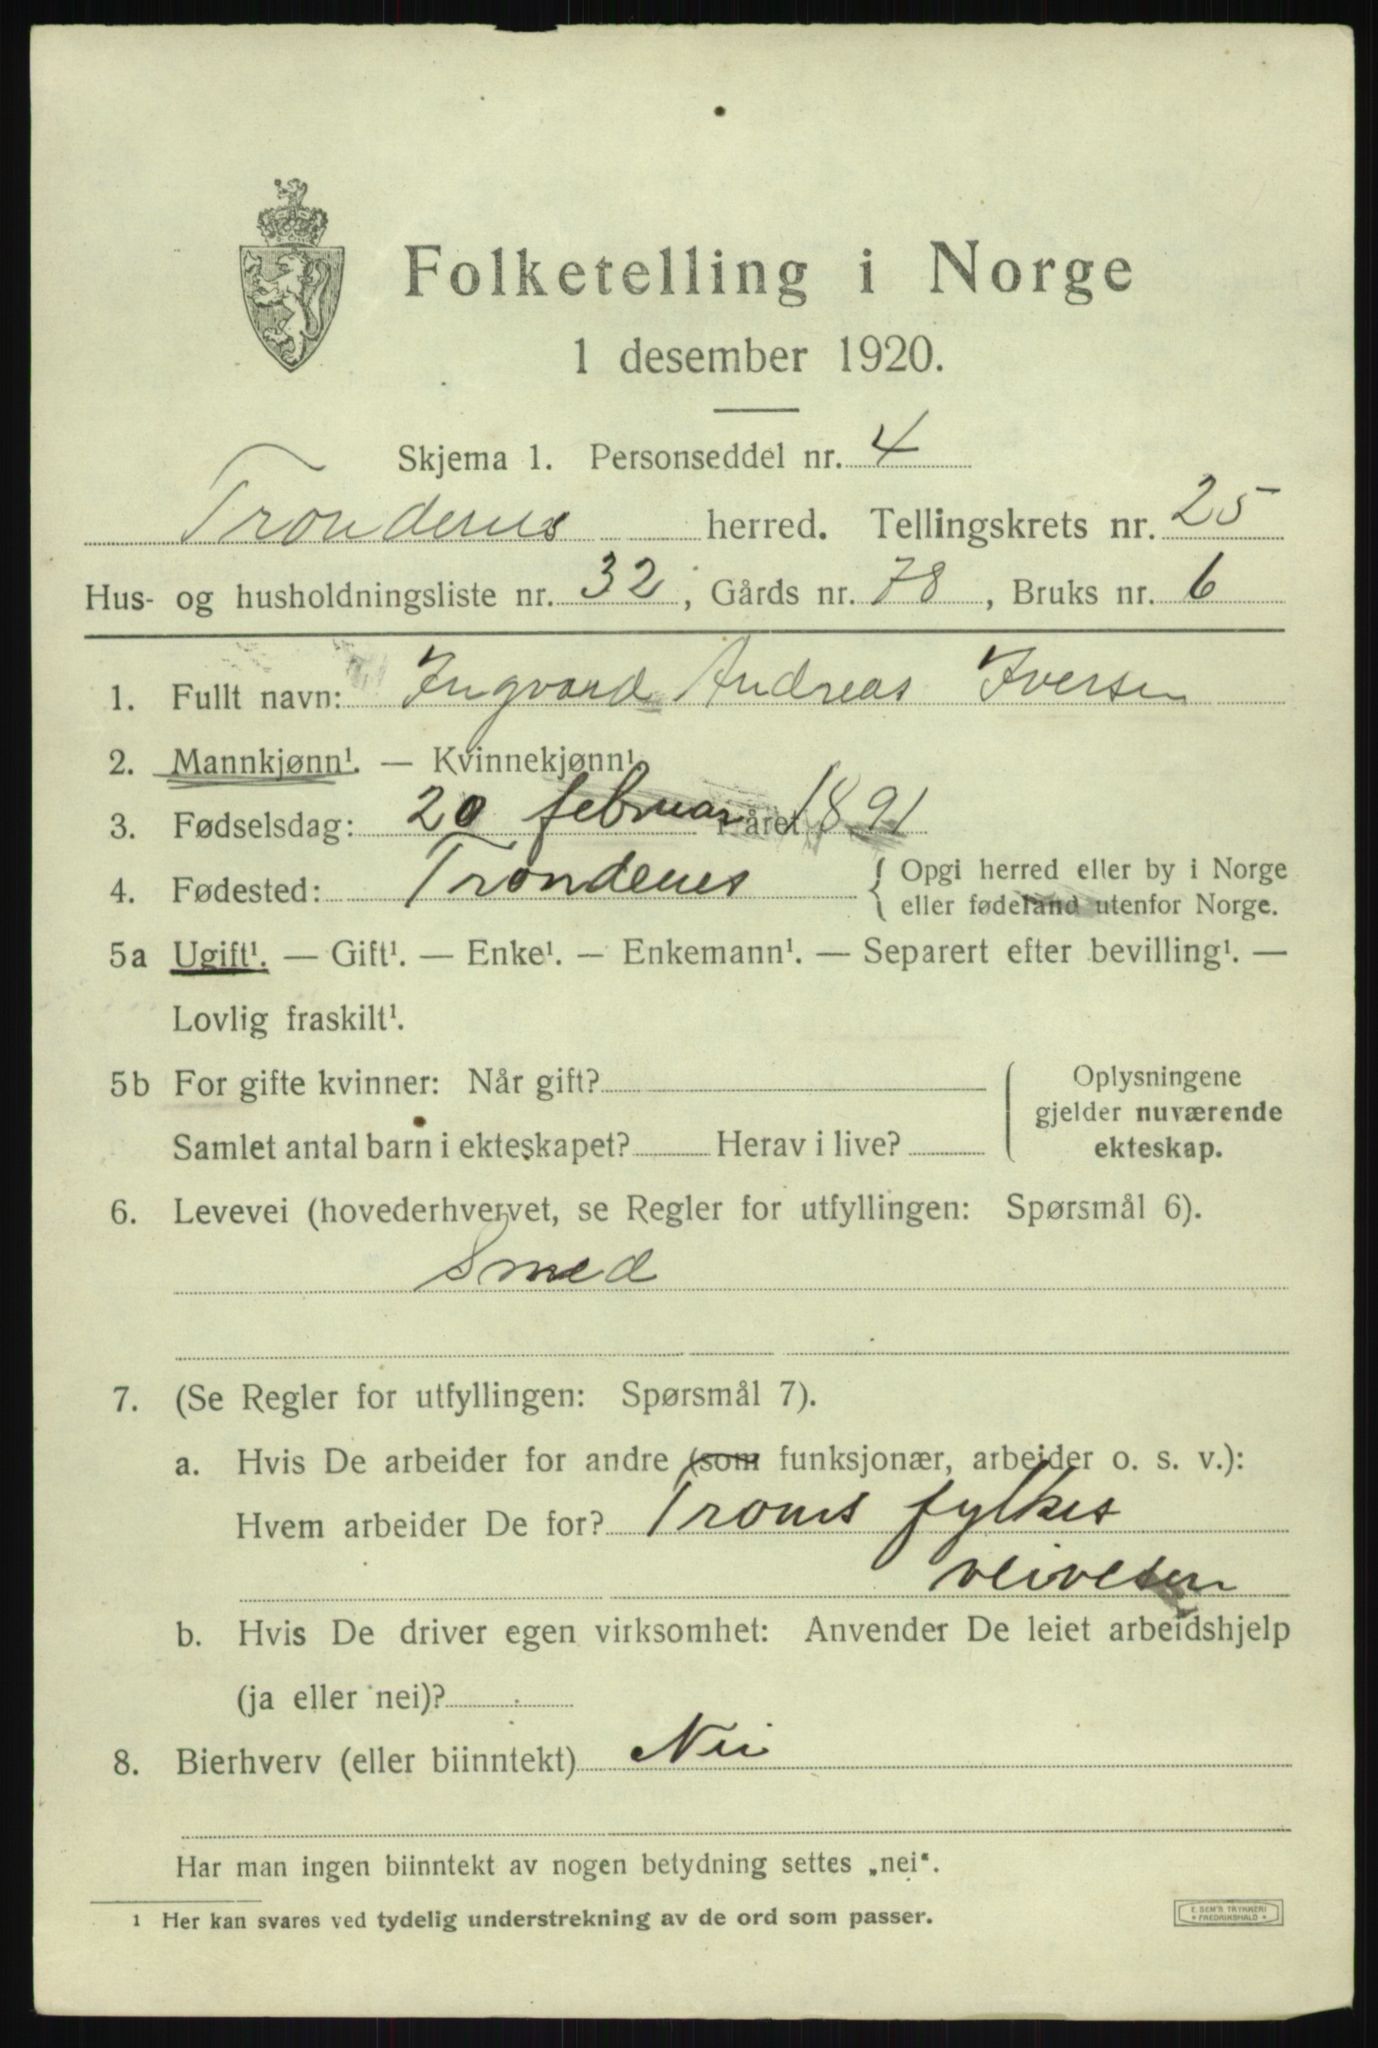 Folketelling i Norge
1 desember 1920.
Skjema 1. Personseddel nr. 4
Trondenes herred. Tellingskrets nr. 25
Hus- og husholdningsliste nr. 32, Gårds nr. 78, Bruks nr. 6
1. Fullt navn: Ingvard Andreas Iversen
2. Mannkjønn¹. — Kvinnekjønn¹.
3. Fødselsdag: 20 februar i året 1891
4. Fødested: Trondenes { Opgi herred eller by i Norge
eller fødeland utenfor Norge.
5a Ugift¹. — Gift¹. — Enke¹. — Enkemann¹. — Separert efter bevilling¹. —
Lovlig fraskilt¹.
5b For gifte kvinner: Når gift?
Samlet antal barn i ekteskapet? Herav i live?
Oplysningene
gjelder nuværende
ekteskap.
6. Levevei (hovederhvervet, se Regler for utfyllingen: Spørsmål 6).
Smed
7. (Se Regler for utfyllingen: Spørsmål 7).
a. Hvis De arbeider for andre (som funksjonær, arbeider o. s. v.):
Hvem arbeider De for? Troms fylkes
veivesen
b. Hvis De driver egen virksomhet: Anvender De leiet arbeidshjelp
(ja eller nei)?
8. Bierhverv (eller biinntekt) Nei
Har man ingen biinntekt av nogen betydning settes „nei“.
1 Her kan svares ved tydelig understrekning av de ord som passer.
E. SEM'S TRYKKERI
FREDRIKSHALD